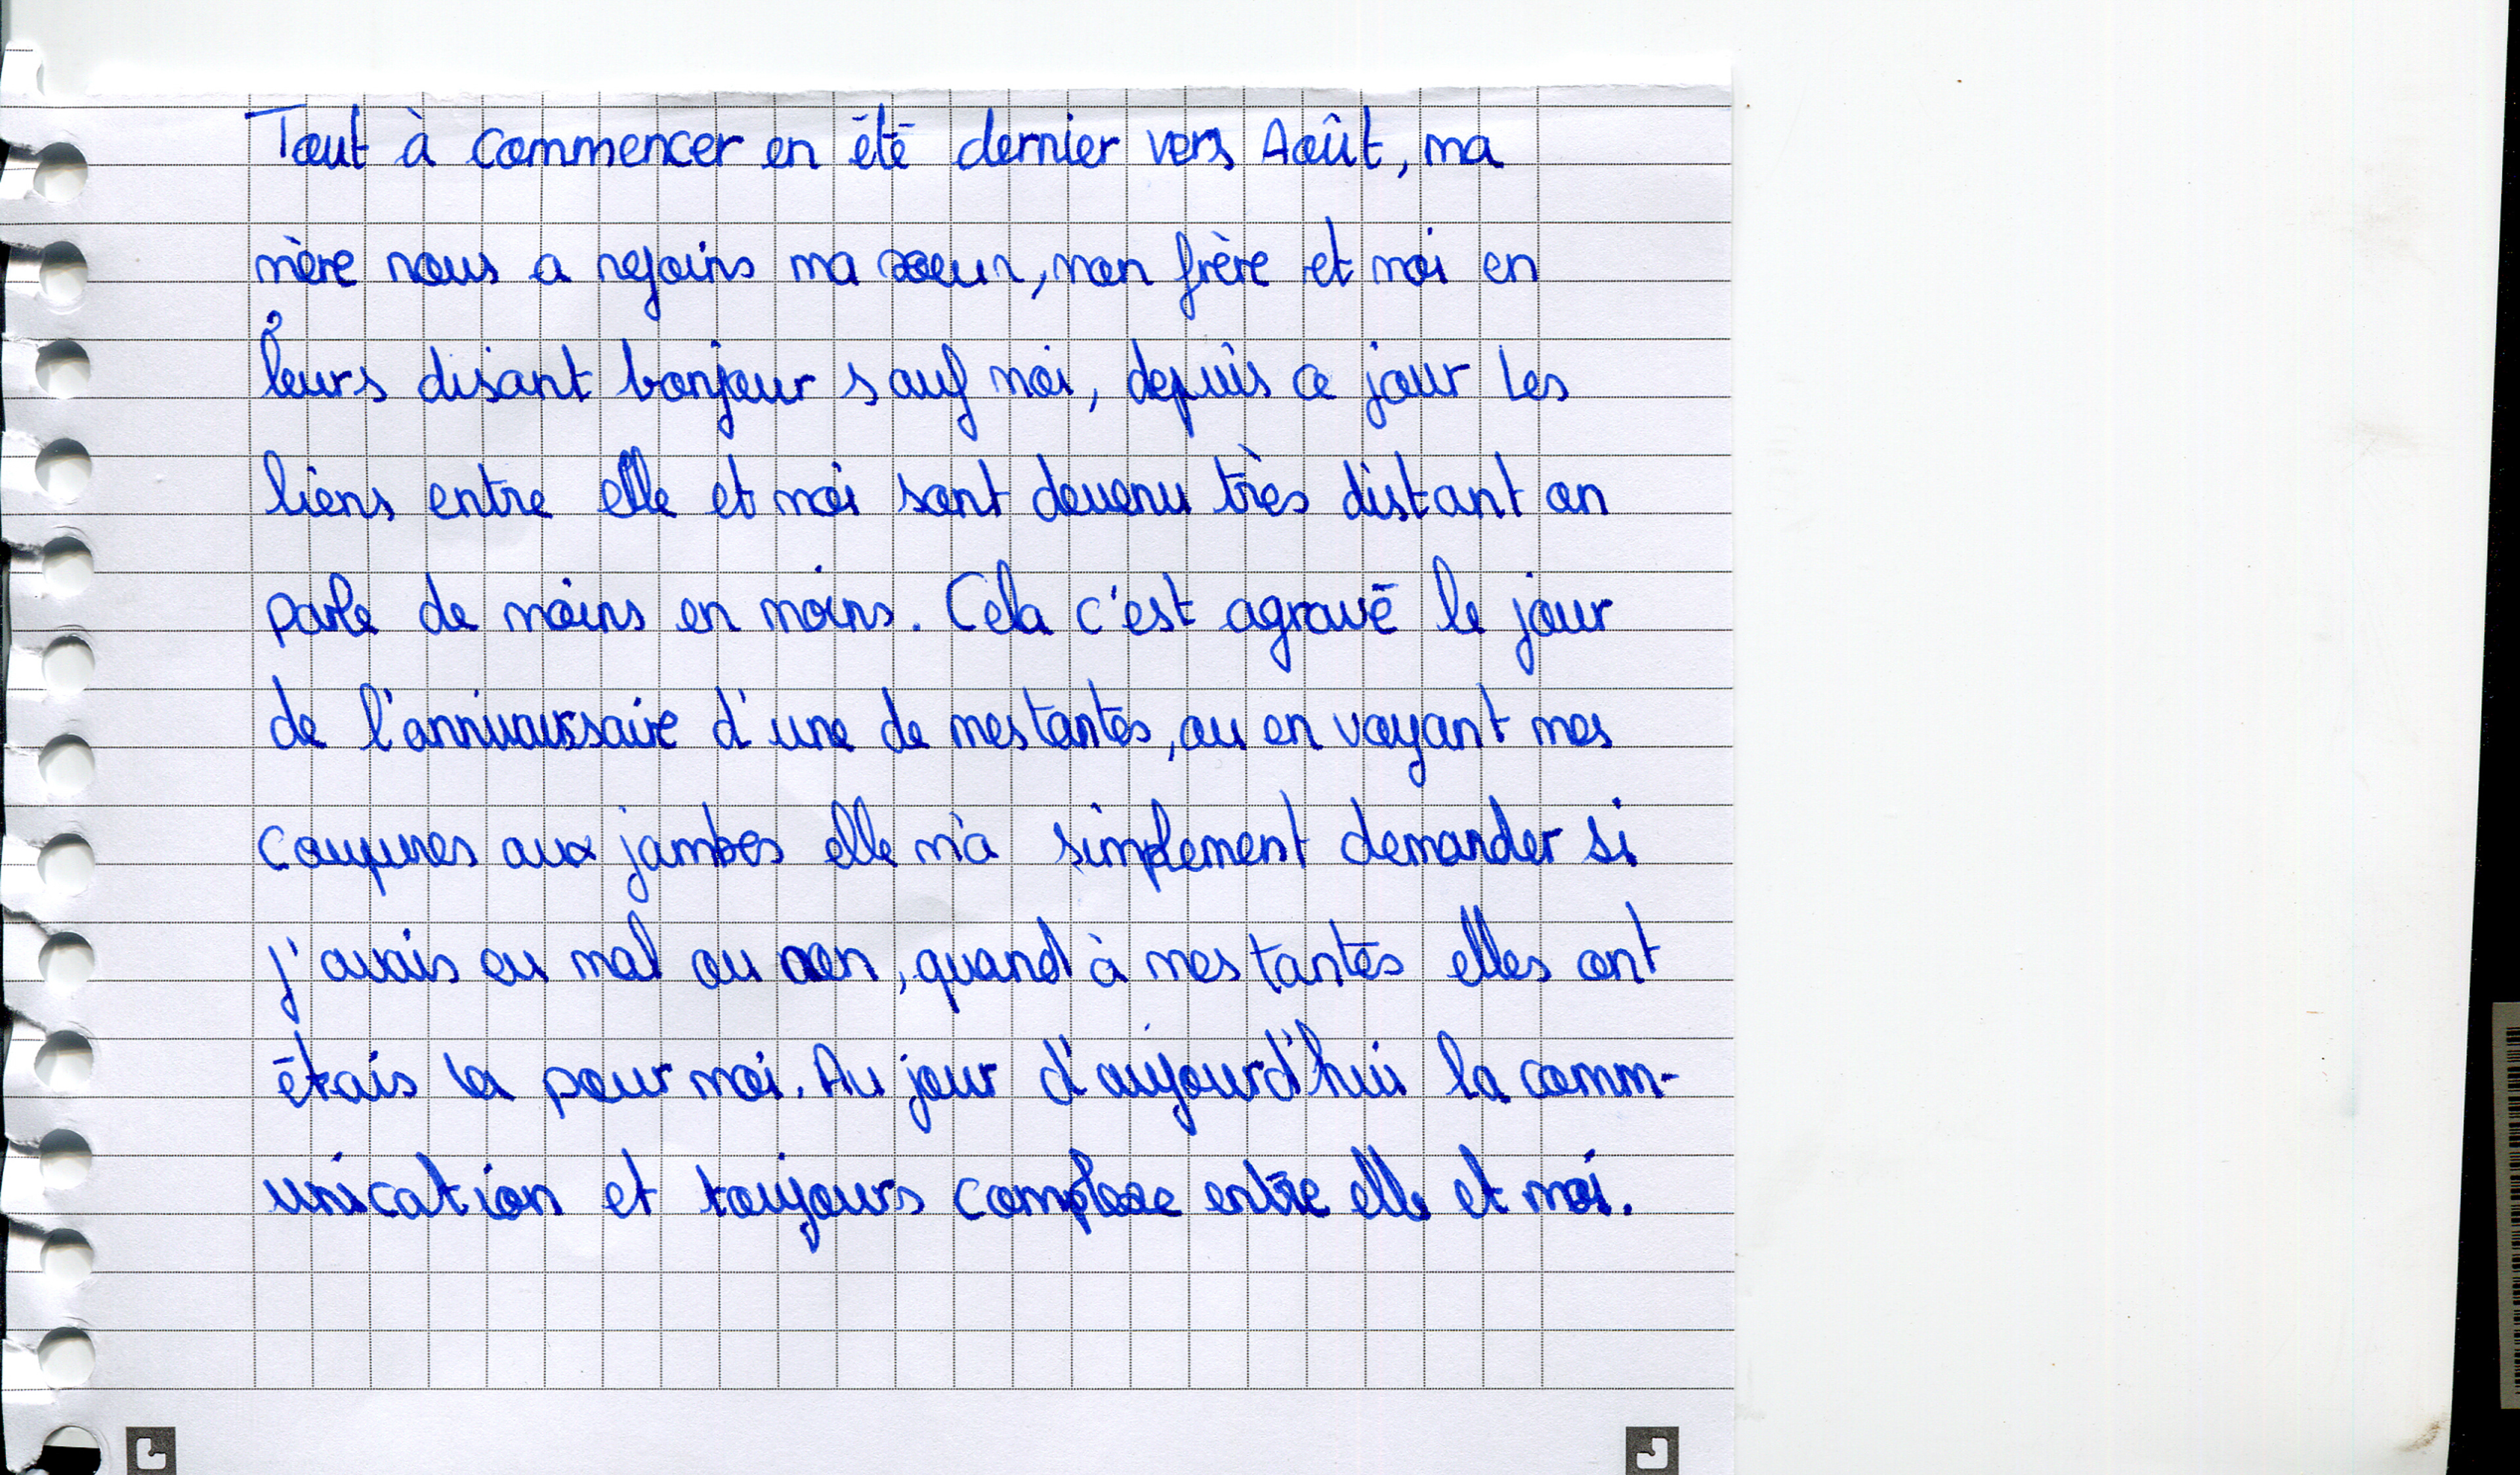 Tout à commencer en été dernier vers Août, ma
mère nous a rejoins ma soeur, mon frère et moi en
leurs disant bonjour sauf moi, depuis ce jour les
liens entre elle et moi sont devenu très distant on
parle de moins en moins. Cela c'est agravé le jour
de l'anniversaire d'une de mes tantes, ou en voyant mes
coupures aux jambes elle m'a simplement demander si
j'avais eu mal ou non, quand à mes tantes elles ont
étais la pour moi. Au jour d'aujourd'hui la comm-
unication et toujours complexe entre elle et moi.